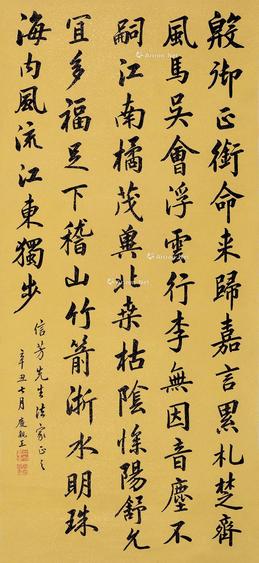 殿御正銜命来歸嘉言累札楚齊
風馬吳會浮雲行李無因音塵不
嗣江南橘茂兾北桒枯陰慘陽舒允
宜多福足下稽山竹箭淅水明珠
海内風流江東獨步
信芳先生法家正之
辛丑七月 慶親王